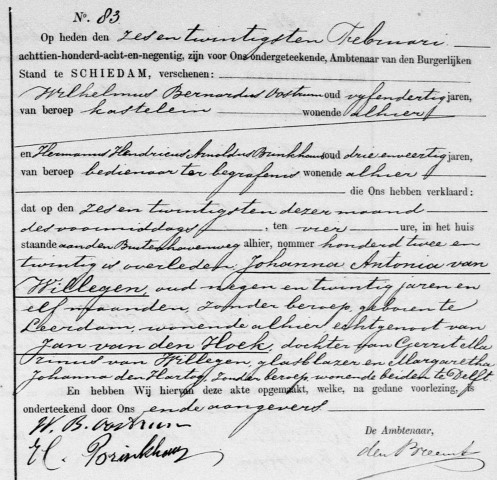 No. 83
Op heden den zes en twintigsten Februari
achttien-honderd-acht-en-negentig, zijn voor Ons ondergeteekende, Ambtenaar van den Burgerlijken
Stand te SCHIEDAM, verschenen:
Wilhelmus Bernardus Oostrum oud vyf en dertig jaren,
van beroep kastelein wonende alhier
en Hermanus Hendricus Arnoldus Brinkhaus oud drie en veertig jaren,
van beroep bedienaar ter begrafenis wonende alhier
die Ons hebben verklaard:
dat op den zes en twintigsten dezer maand
des voormiddags, ten vier ure, in het huis
staande aan den Buitenhavenweg alhier, nommer honderd twee en
twintig is overleden Johanna Antonia van
Willegen, oud negen en twintig jaren en
elf maanden, zonder beroep, geboren te
Leerdam, wonende alhier echtgenoot van
Jan van den Hoek, dochter van Gerrit Ma
rinus van Willegen, glasblazer en Margaretha
Johanna den Hartog, zonder beroep, wonende beiden te Delft
En hebben Wij hiervan deze akte opgemaakt, welke, na gedane voorlezing, is
onderteekend door Ons en de aangevers
W. B. Oostrum
De Ambtenaar,
H. Brinkhaus